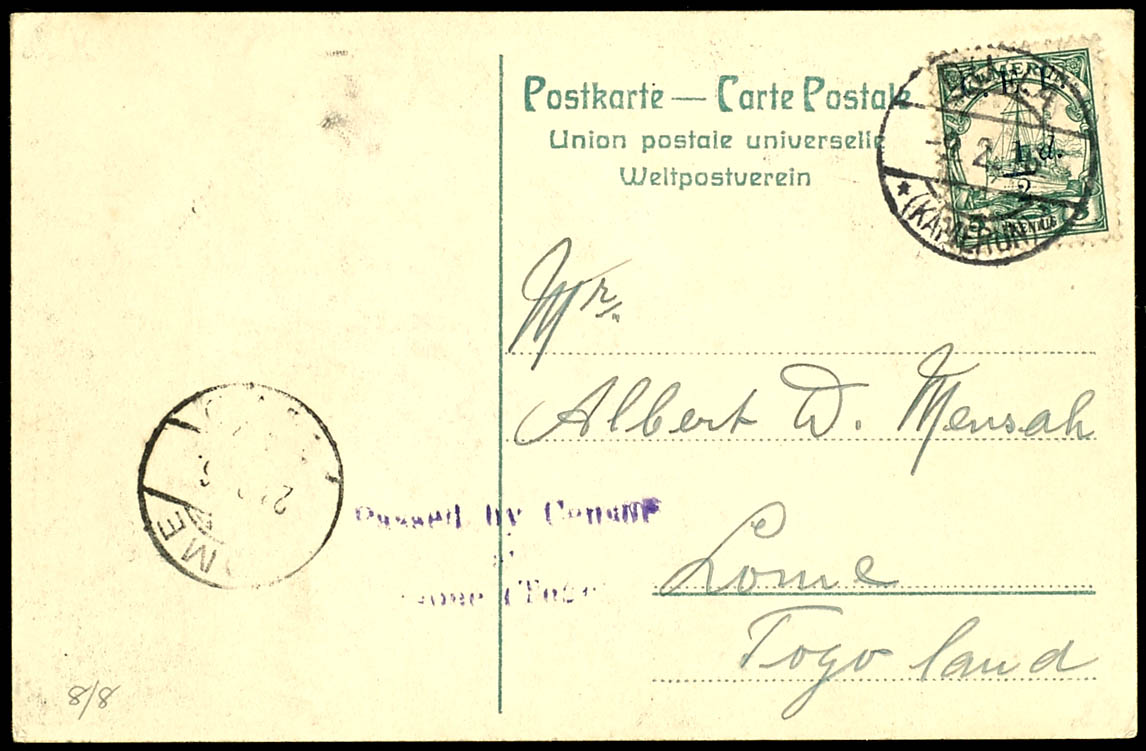 Postkarte — Carte Postale
Union postale universelle
Weltpostverein
KAMERUN
1 d.
2
(KAMERUN)
Mr.
Albert W. Mensah
Lome
Togo land
Passed by Censor
8/8